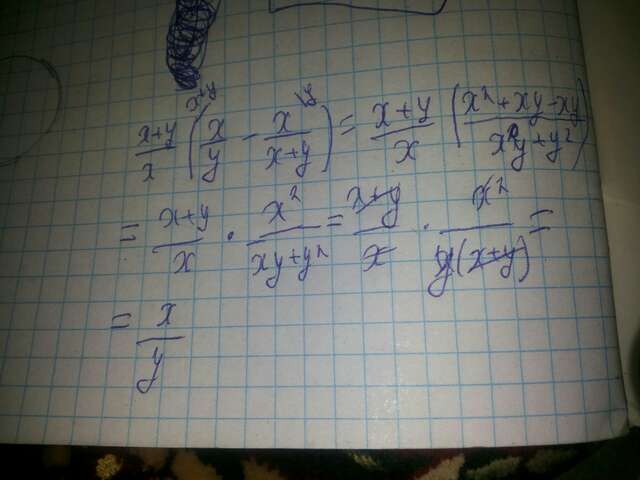 (x+y)/x (x/y - x/(x+y)) = (x+y)/x ((x²+xy-xy)/(xy+y²))
= (x+y)/x · x²/(xy+y²) = (x+y)/x · x²/(y(x+y)) =
= x/y